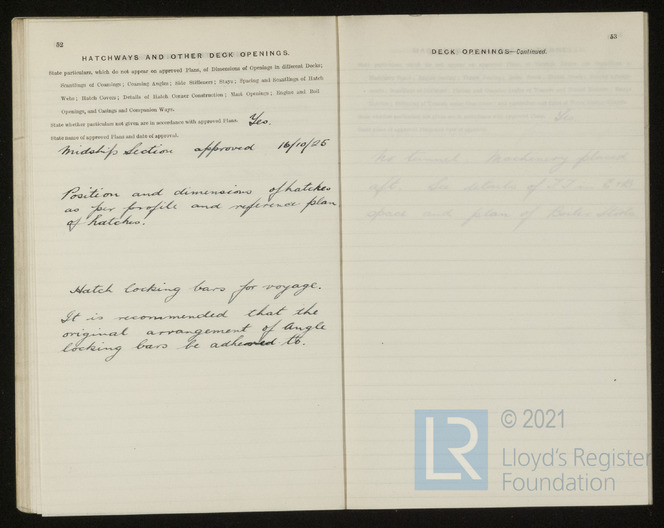 52
HATCHWAYS AND OTHER DECK OPENINGS.
State particulars, which do not appear on approved Plans, of Dimensions of Openings in different Decks;
Scantlings of Coamings; Coaming Angles; Side Stiffeners; Stays; Spacing and Scantlings of Hatch
Webs; Hatch Covers; Details of Hatch Corner Construction; Mast Openings; Engine and Boil
Openings, and Casings and Companion Ways.
State whether particulars not given are in accordance with approved Plans. Yes.
State name of approved Plans and date of approval.
Midship Section approved 16/10/25
Position and dimensions of hatches
as per profile and reference plan
of hatches.
Hatch locking bars for voyage.
It is recommended that the
original arrangement of angle
locking bars be adhered to.
53
DECK OPENINGS—Continued.
No tunnel. Machinery placed
aft. See details of
space and plan of
LR © 2021
Lloyd's Register
Foundation